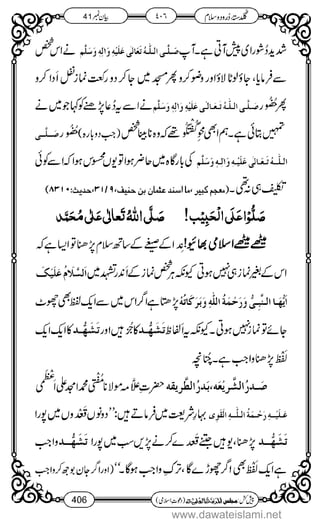 گلدستۂ درود و سلام ٤٠٦ بیان نمبر 41
شدید دُشواری پیش آتی ہے۔ آپ صَلَّی اللہُ تَعَالٰی عَلَیْہِ وَاٰلِہٖ وَسَلَّم نے اس شخص
سے فرمایا، جاؤ لوٹا لاؤ اور وضو کرو پھر مسجد میں جا کر دو رکعت نمازِ نفل ادا کرو
پھر حُضُور صَلَّی اللہُ تَعَالٰی عَلَیْہِ وَاٰلِہٖ وَسَلَّم نے اسے یہ دُعا پڑھنے کو کہا جو میں نے
تمہیں بتائی ہے۔ ابھی ہم محوِ گفتگو ہی تھے کہ وہ نابینا شخص (جب دوبارہ) حُضُور صَلَّی
اللہُ تَعَالٰی عَلَیْہِ وَاٰلِہٖ وَسَلَّم کی بارگاہ میں حاضر ہوا تو یوں محسوس ہوا کہ اسے کوئی
تکلیف ہی نہ تھی۔ (معجم کبیر، ما اسند عثمان بن حنیف، ۹/۳۱، حدیث: ۸۳۱۰)
صَلُّوْا عَلَی الْحَبِیْب! صَلَّی اللہُ تَعَالٰی عَلٰی مُحَمَّد
میٹھے میٹھے اسلامی بھائیو!
اس کے بغیر نماز ہی نہیں ہوتی کیونکہ ہر شخص نماز کے اندر تشہد میں اَلسَّلَامُ عَلَیْکَ
اَیُّہَا النَّبِیُّ وَرَحْمَۃُ اللہِ وَبَرَکَاتُہٗ پڑھتا ہے اگر اس میں سے ایک لفظ بھی چھوٹ
جائے تو نماز نہیں ہوتی۔ کیونکہ یہ الفاظ تَشَہُّد کا جُز ہیں اور تَشَہُّد کا ایک ایک
لفظ پڑھنا واجب ہے۔ چُنانچِہ
صَدْرُ الشَّرِیْعَہ، بَدْرُ الطَّرِیْقَہ حضرتِ علّامہ مولانا مُفتی محمد امجد علی اَعْظَمِی
عَلَیْہِ رَحْمَۃُ اللہِ الْقَوِی بہارِ شریعت میں فرماتے ہیں: ’’دونوں قَعْدوں میں پورا
تَشَہُّد پڑھنا، یوہیں جتنے قعدے کرنے پڑیں سب میں پورا تَشَہُّد واجب
ہے ایک لفظ بھی اگر چھوڑے گا، ترکِ واجب ہوگا۔‘‘ (اور اگر جان بوجھ کر واجب
406 پیش کش: مجلس اَلْمَدِیْنَۃُ الْعِلْمِیَّۃ (دعوتِ اسلامی)
www.dawateislami.net